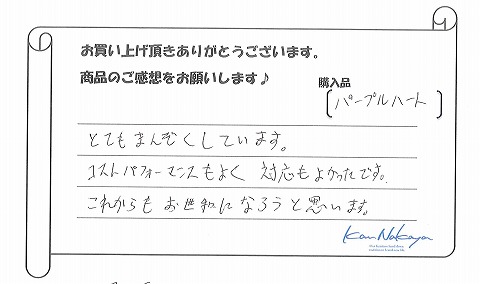 お買い上げ頂きありがとうございます。
商品のご感想をお願いします♪
購入品
[パープルハート]
とてもまんぞくしています。
コストパフォーマンスもよく 対応もよかったです。
これからも お世和になろうと思います。
Kan Nakaya